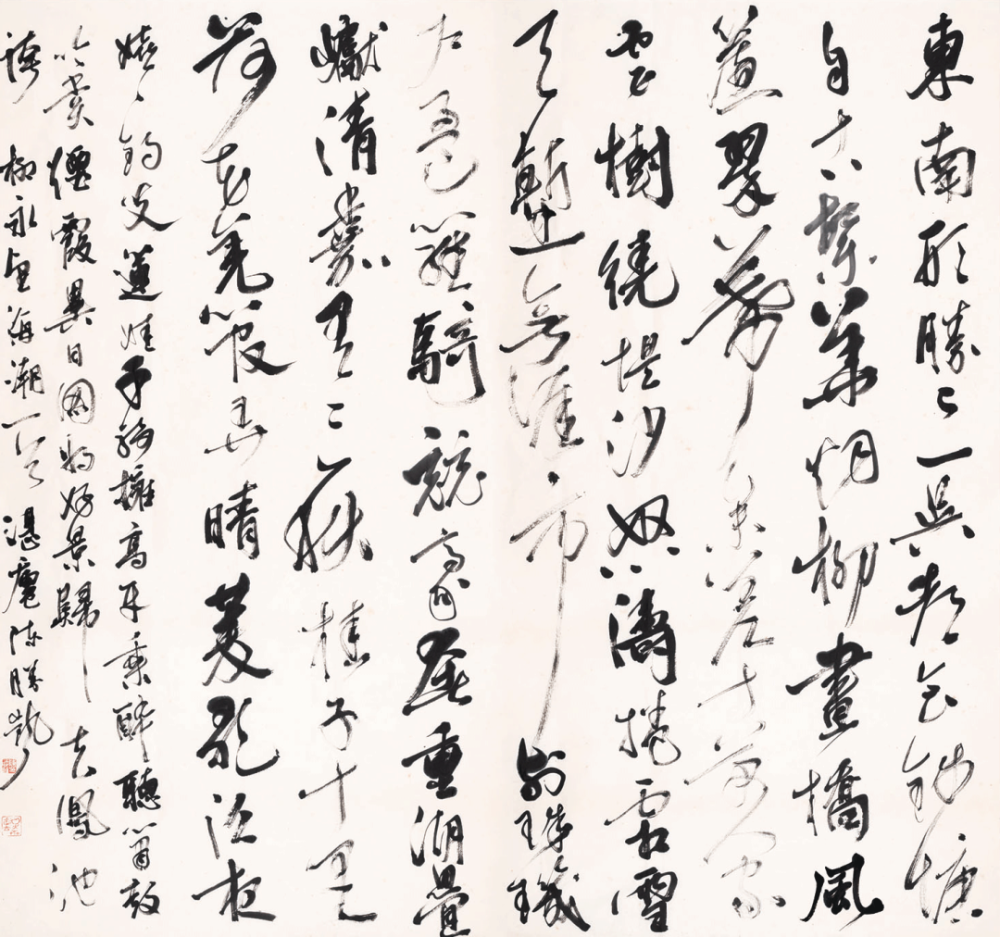 東南形勝三吳都會錢塘
自古繁華烟柳畫橋風
簾翠幕參差十萬家
雲樹繞堤沙怒濤捲霜雪
天塹無涯市列珠璣
戶盈羅綺競豪奢重湖疊
巘清嘉有三秋桂子十里
荷花羌管弄晴菱歌泛夜
嬉嬉釣叟蓮娃千騎擁高牙乘醉聽簫鼓
吟賞煙霞異日圖將好景歸去鳳池
誇 柳永望海潮一首 湛 陳勝凱